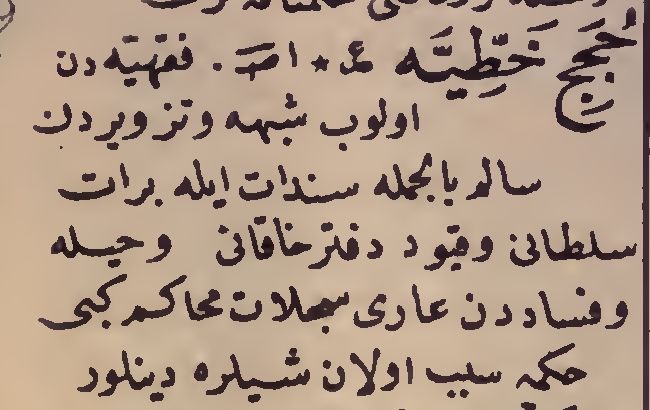 حُجَجِ خَطِّيَّه ع * اص . فقهیه دن
اولوب شبهه وتزویردن
سالم بالجمله سندات ایله برات
سلطانی وقیود دفترخاقانی وحیله
وفساددن عاری سجلات محاکم کبی
حکمه سبب اولان شیلره دینلور